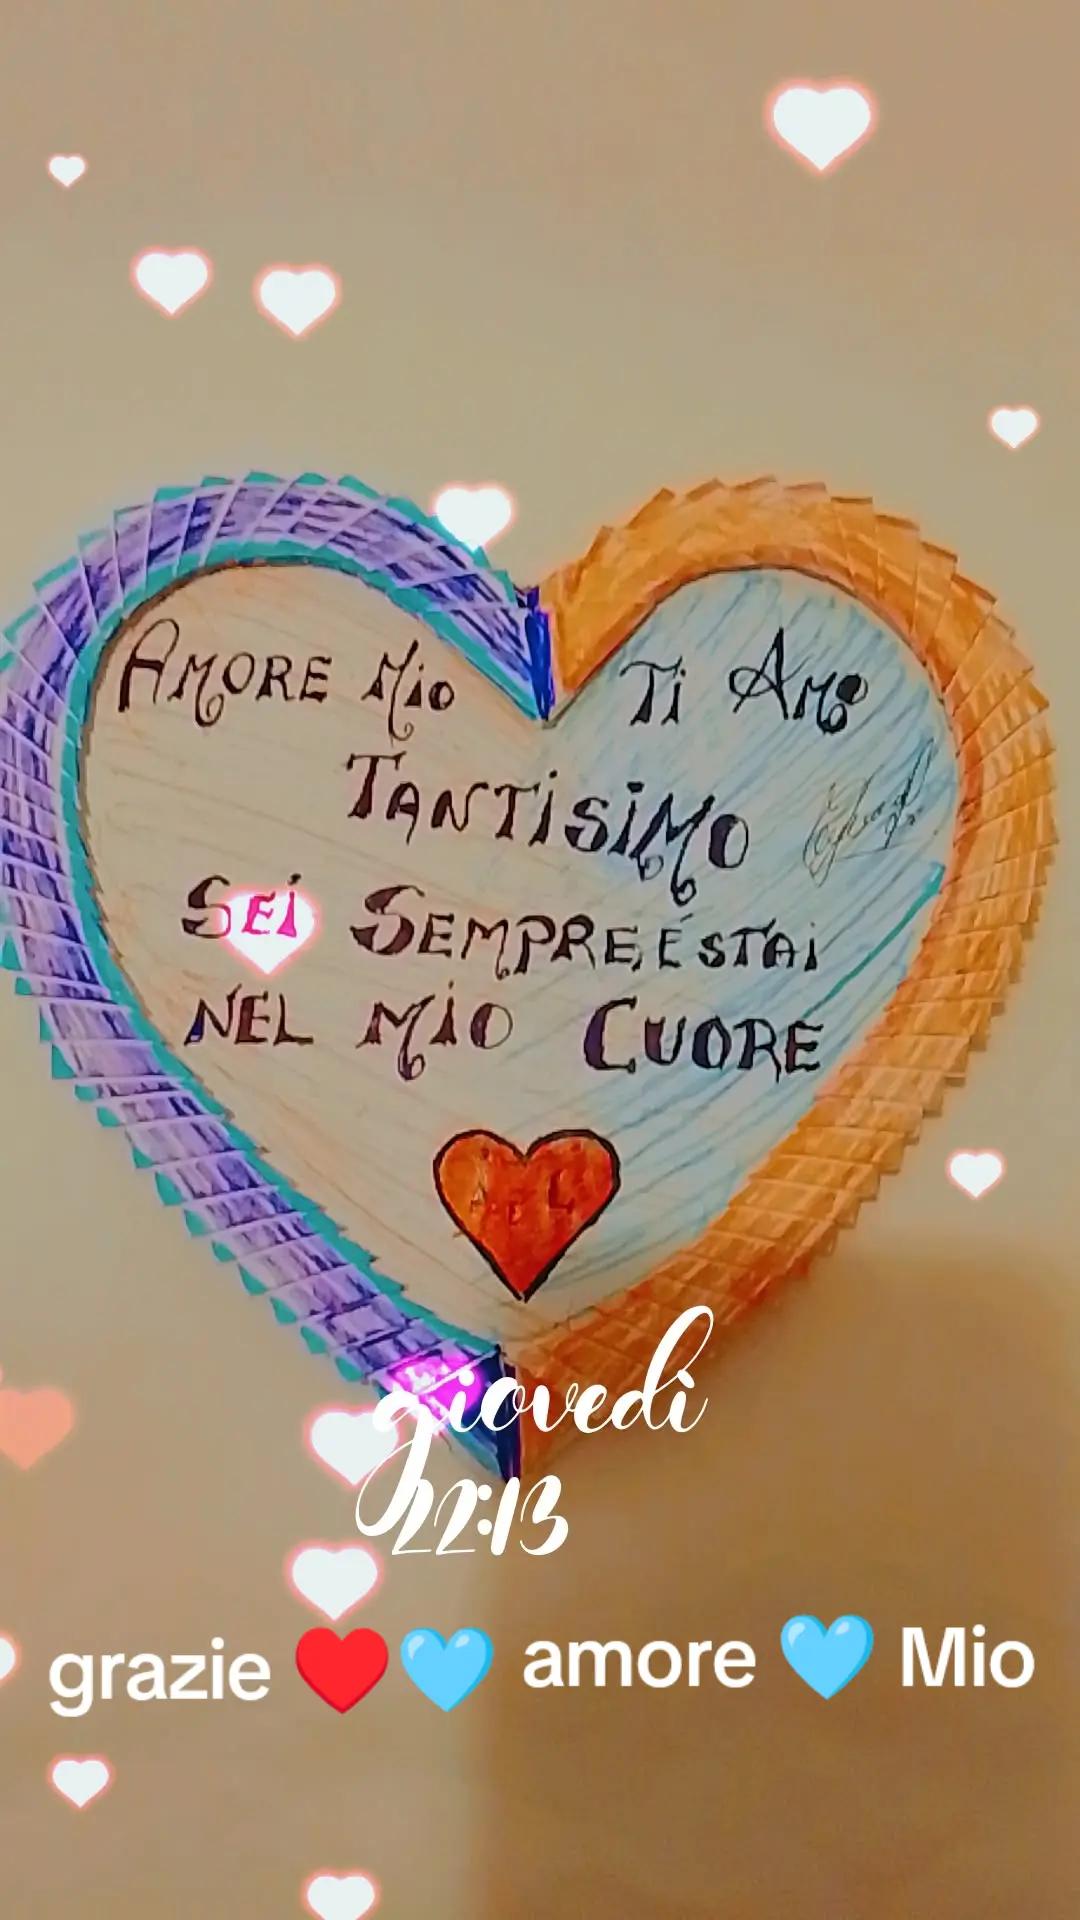 AMORE Mio Ti AMo
TANTiSiMO
SEi SEMPRE, E STAi
NEL MiO CUORE
A e L
giovedì
22:13
grazie ❤️🩵 amore 🩵 Mio